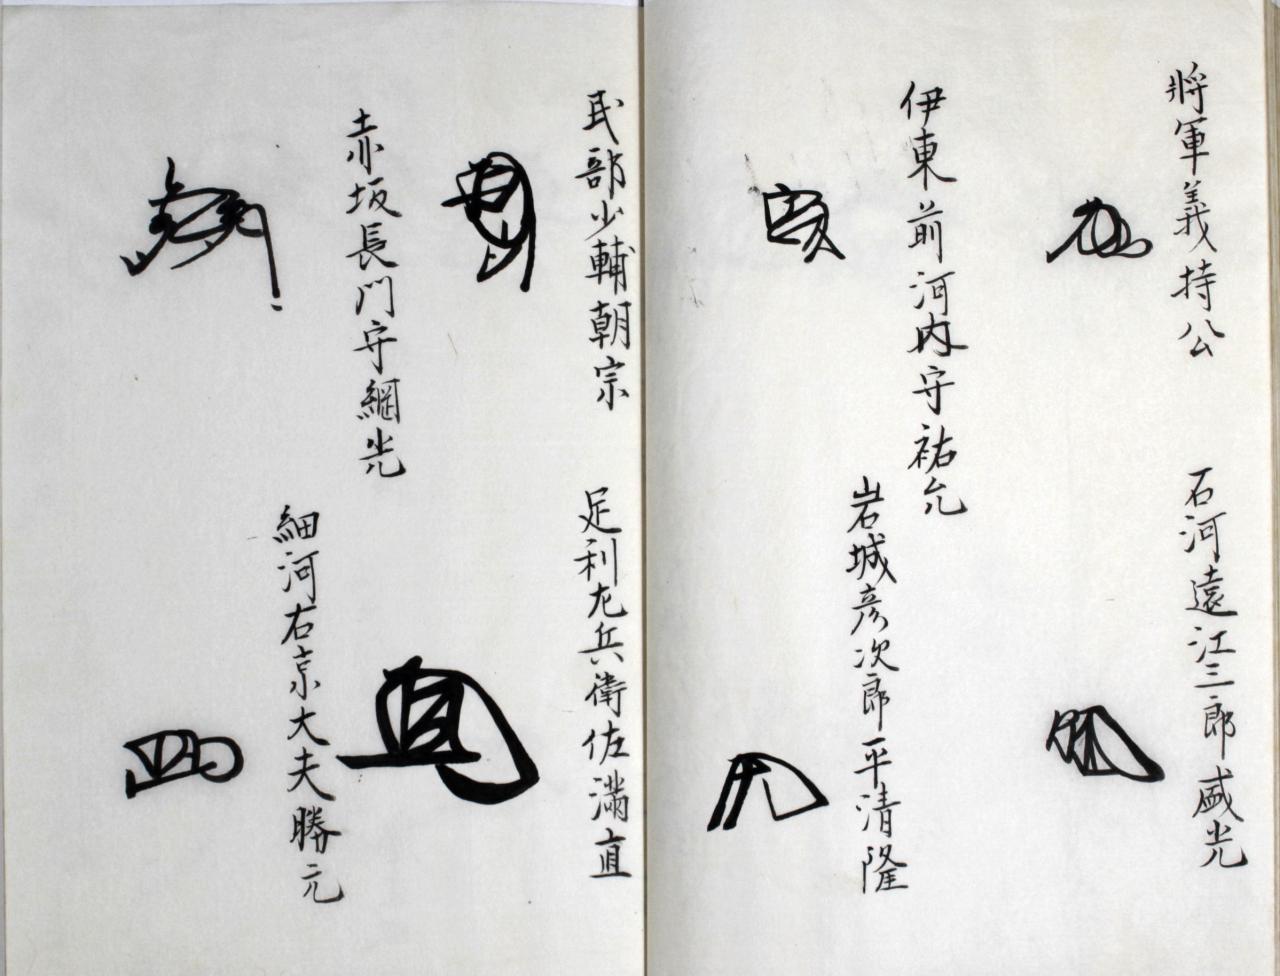 將軍義持公
石河遠江三郎盛光
伊東前河内守祐允
岩城彦次郎平清隆
民部少輔朝宗
足利左兵衛佐満直
赤坂長門守網光
細河右京大夫勝元